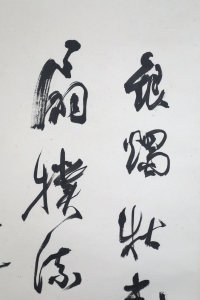 銀燭秋
扇撲流